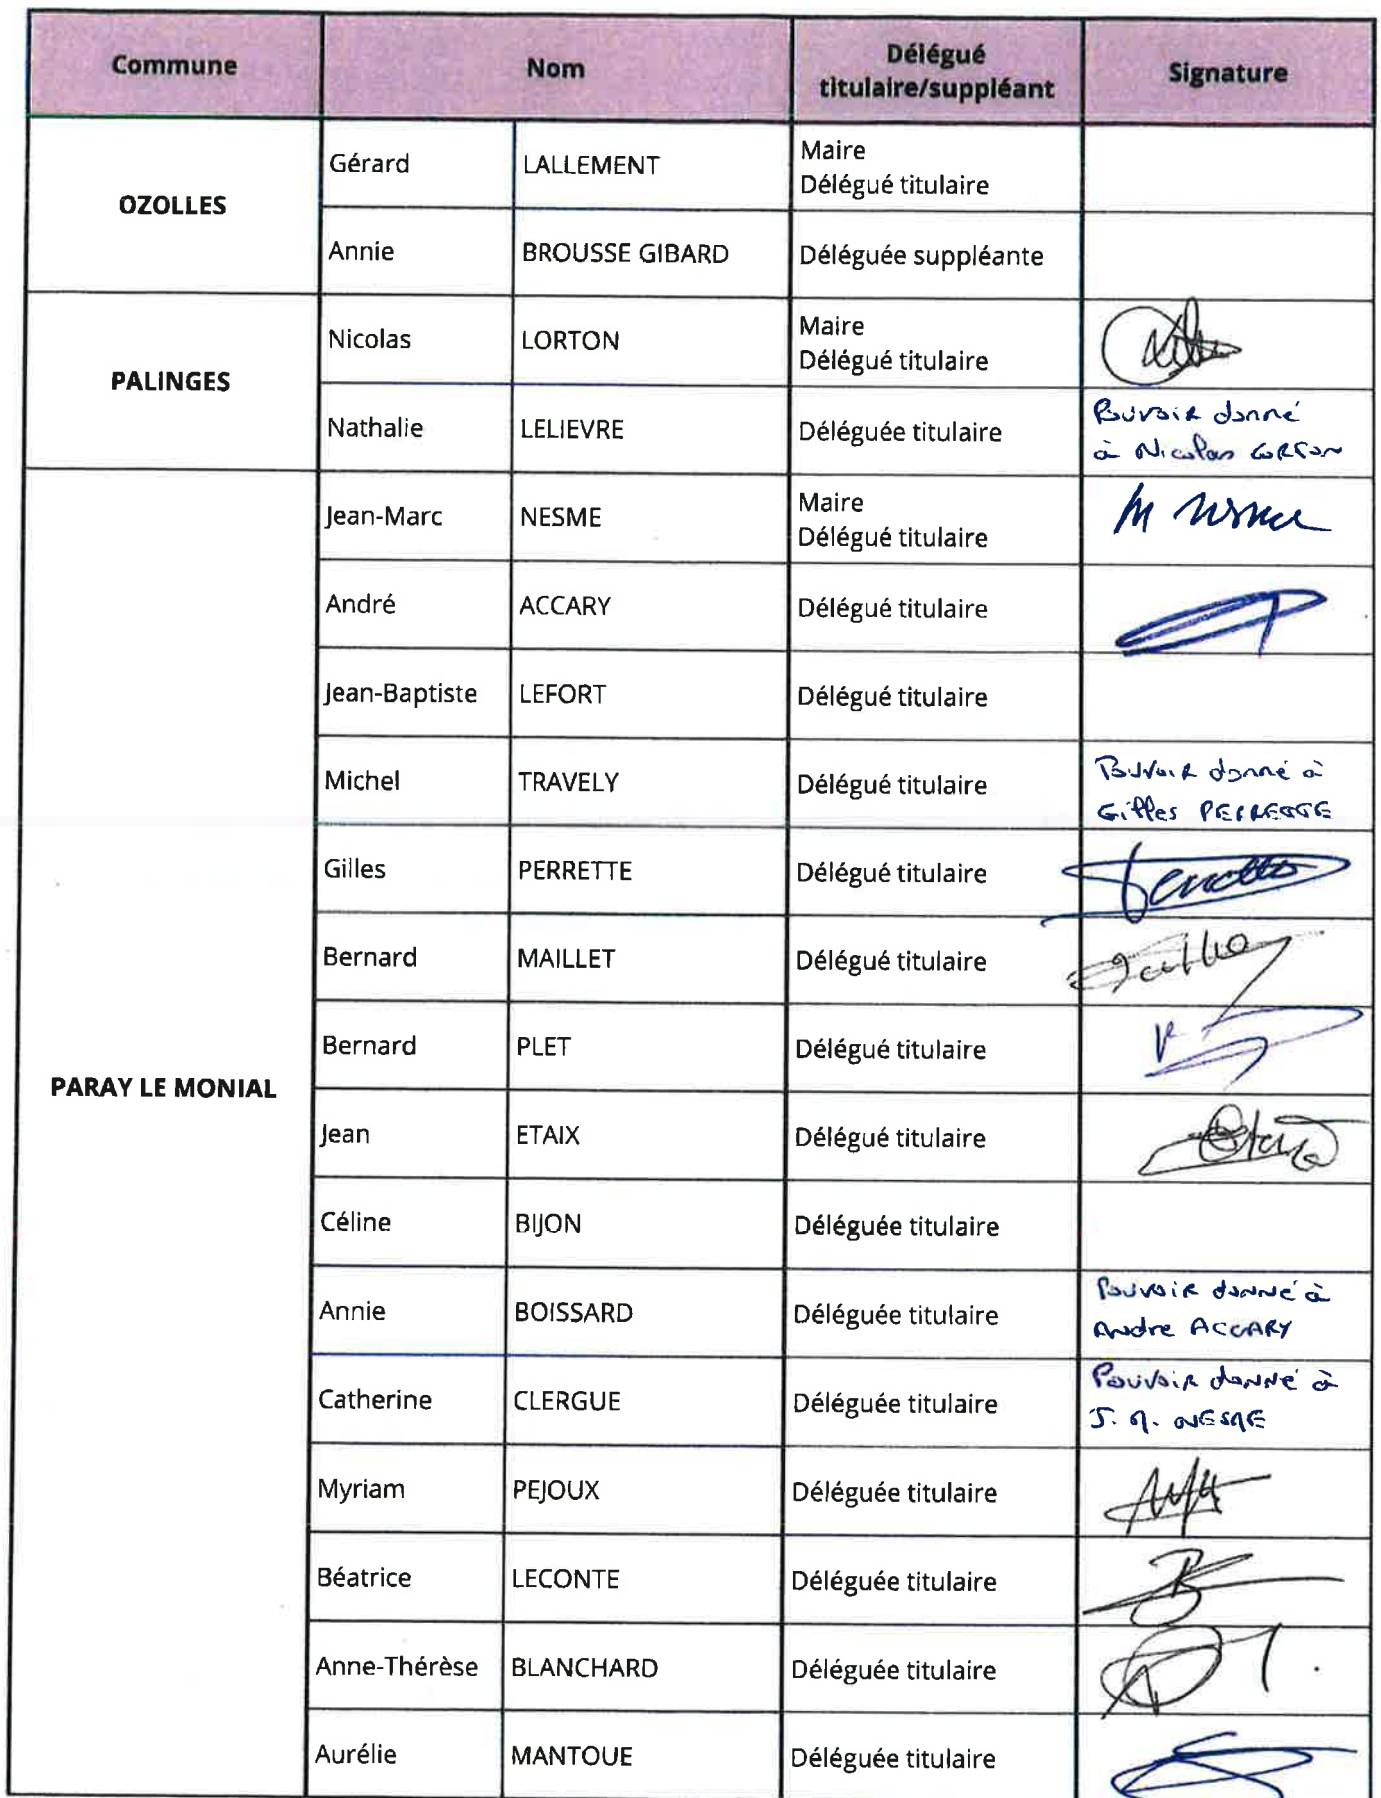 Commune
Nom
Délégué
titulaire/suppléant
Signature
OZOLLES
Gérard
LALLEMENT
Maire
Délégué titulaire
Annie
BROUSSE GIBARD
Déléguée suppléante
PALINGES
Nicolas
LORTON
Maire
Délégué titulaire
Nathalie
LELIEVRE
Déléguée titulaire
Pouvoir donné
à Nicolas LORTON
PARAY LE MONIAL
Jean-Marc
NESME
Maire
Délégué titulaire
André
ACCARY
Délégué titulaire
Jean-Baptiste
LEFORT
Délégué titulaire
Michel
TRAVELY
Délégué titulaire
Pouvoir donné à
Gilles PERRETTE
Gilles
PERRETTE
Délégué titulaire
Bernard
MAILLET
Délégué titulaire
Bernard
PLET
Délégué titulaire
Jean
ETAIX
Délégué titulaire
Céline
BIJON
Déléguée titulaire
Annie
BOISSARD
Déléguée titulaire
Pouvoir donné à
Andre ACCARY
Catherine
CLERGUE
Déléguée titulaire
Pouvoir donné à
J. M. NESME
Myriam
PEJOUX
Déléguée titulaire
Béatrice
LECONTE
Déléguée titulaire
Anne-Thérèse
BLANCHARD
Déléguée titulaire
Aurélie
MANTOUE
Déléguée titulaire